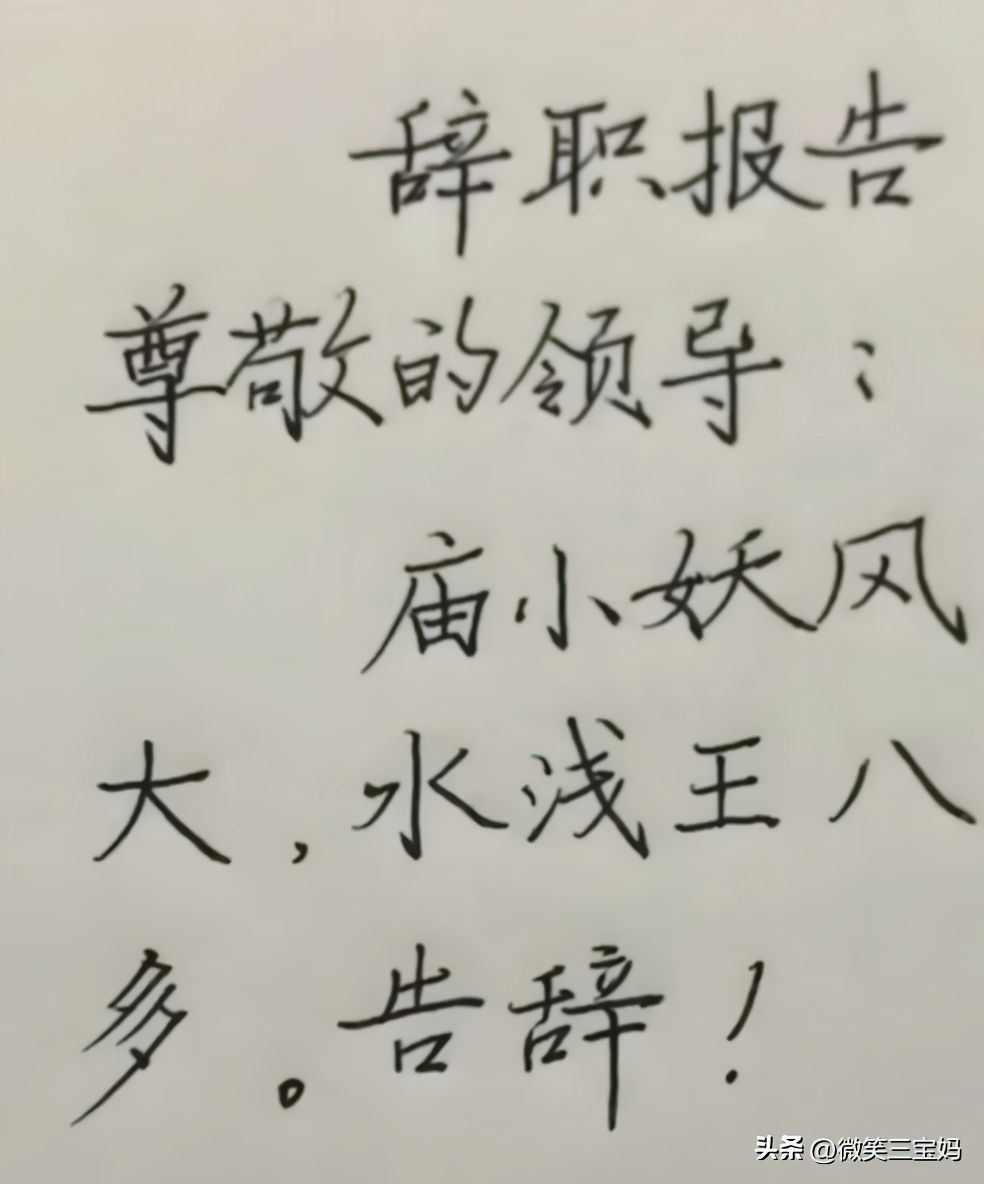 辞职报告
尊敬的领导：
庙小妖风
大，水浅王八
多。告辞！
头条 @微笑三宝妈